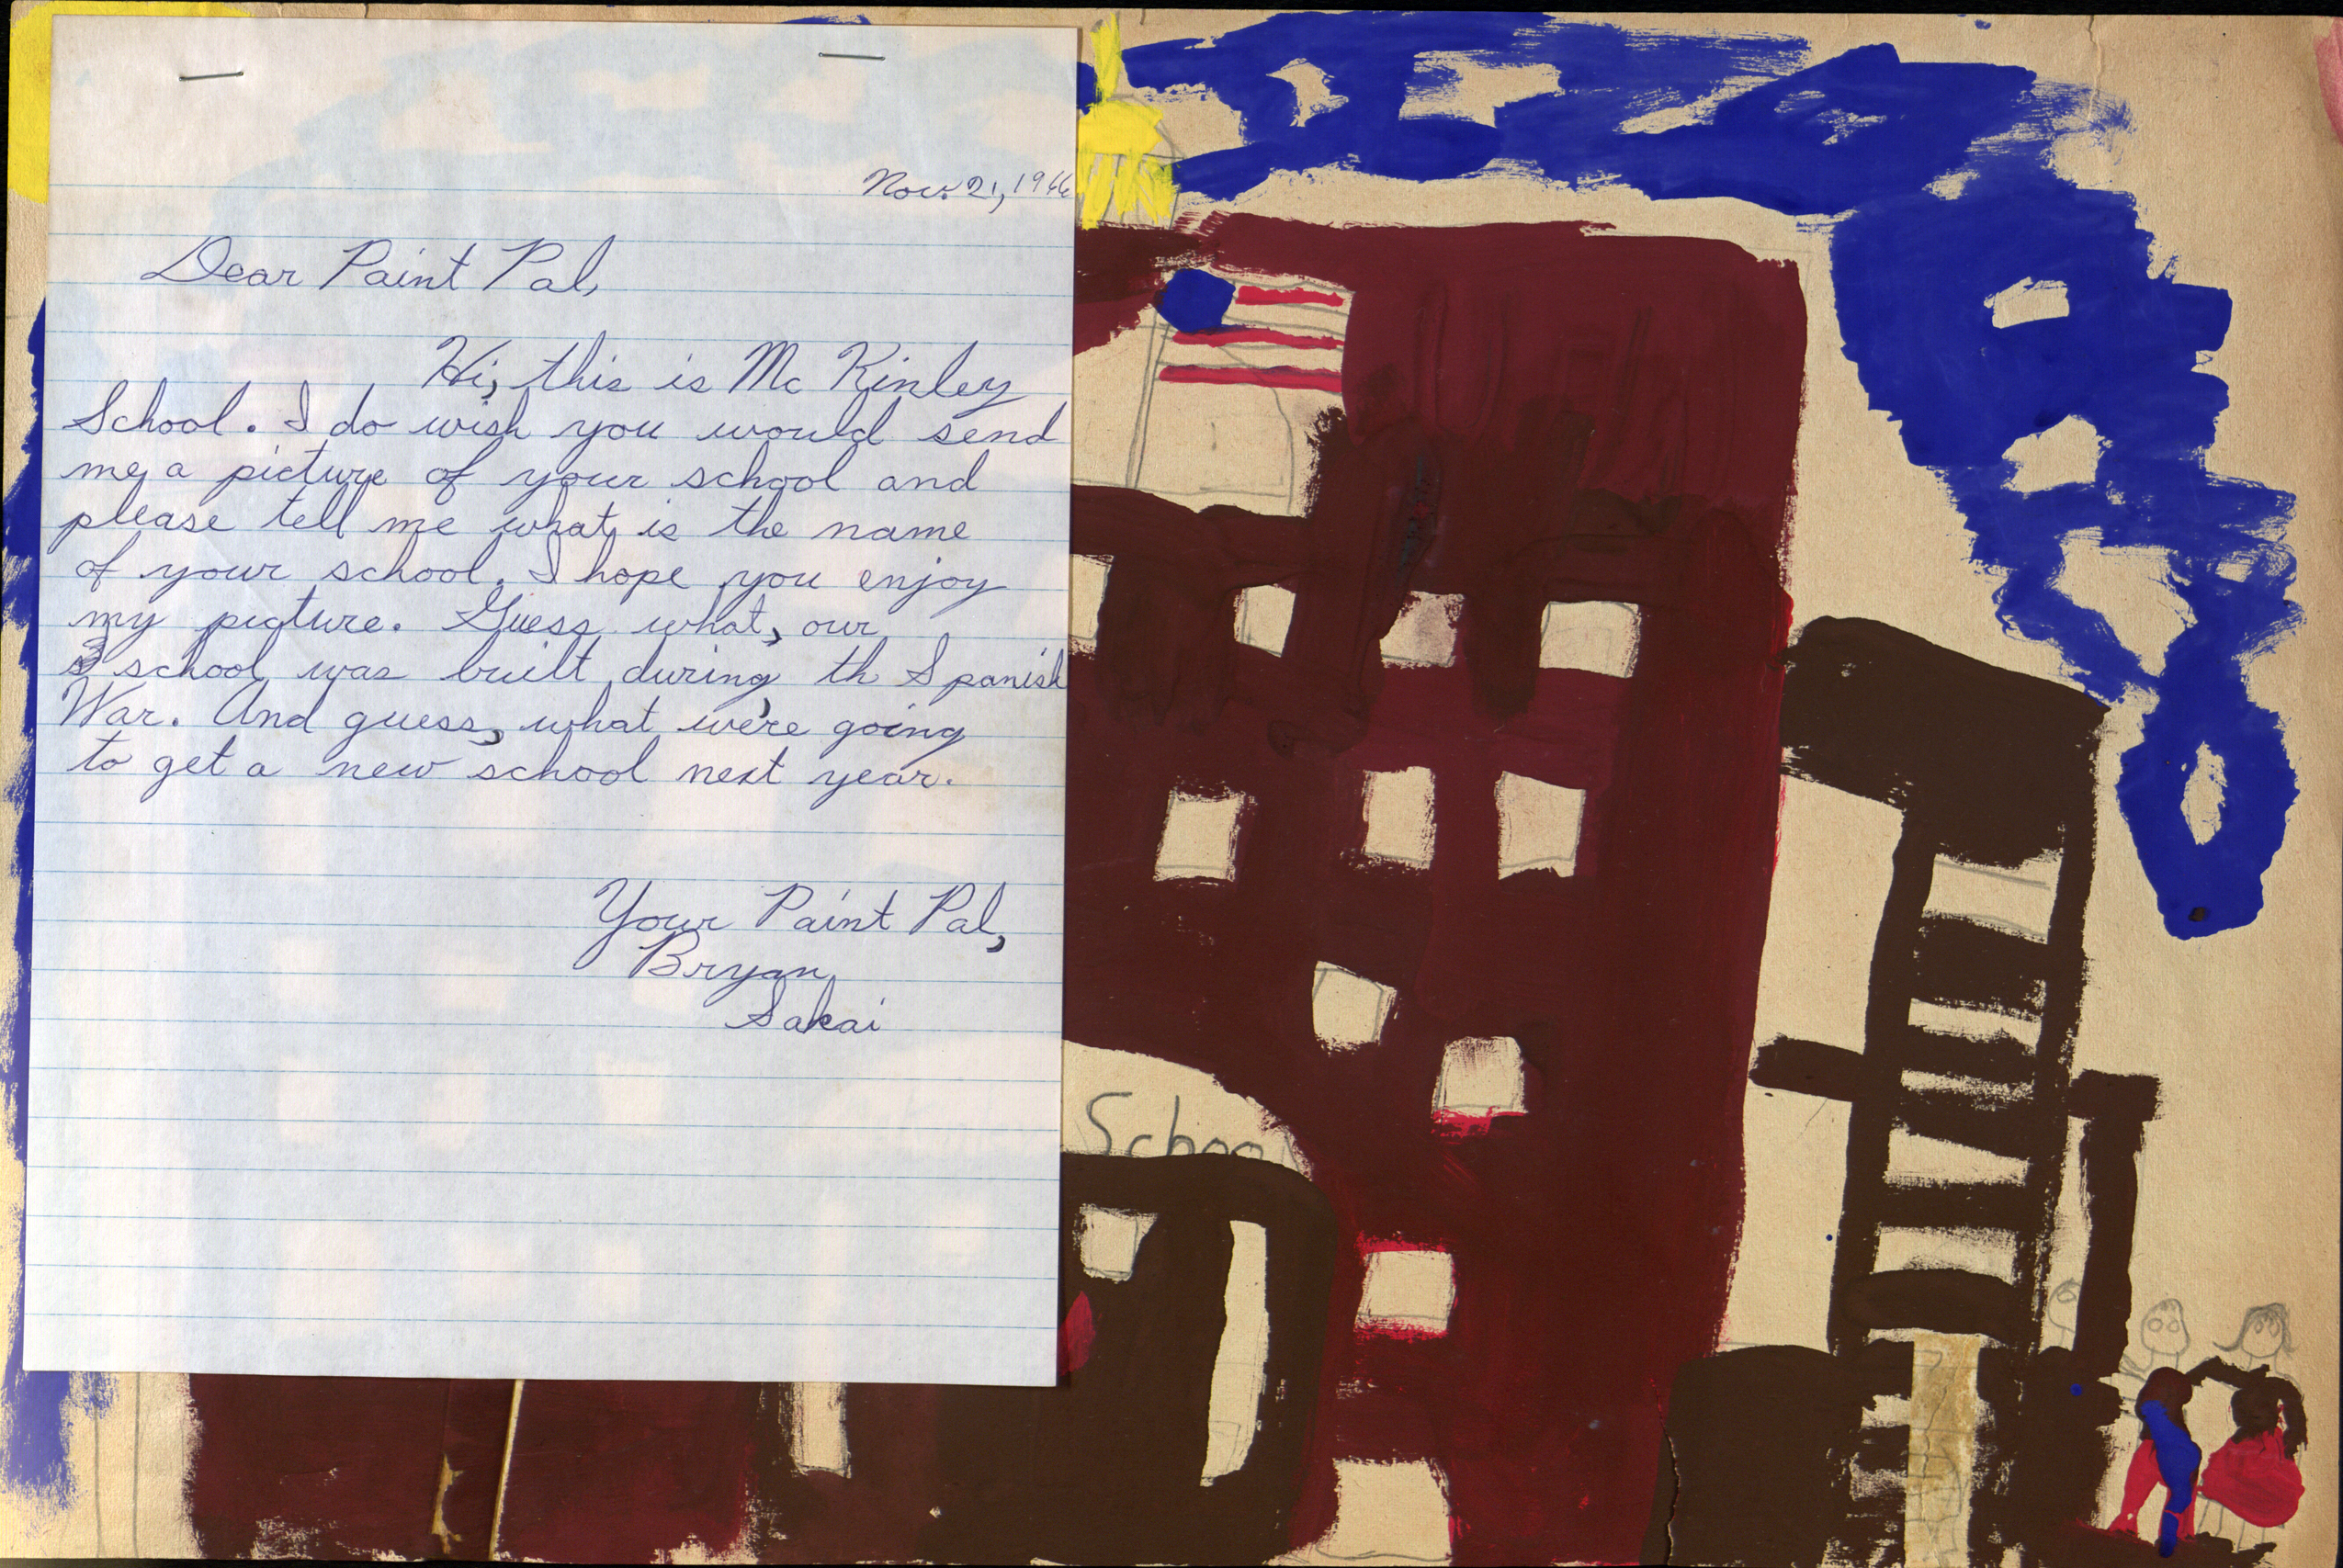 Nov. 21, 1966
Dear Paint Pal,
Hi, this is Mc Kinley
School. I do wish you would send
me a picture of your school and
please tell me what is the name
of your school. I hope you enjoy
my picture. Guess what, our
school was built during th Spanish
War. And guess, what we're going
to get a new school next year.
Your Paint Pal,
Bryan
Sakai
School